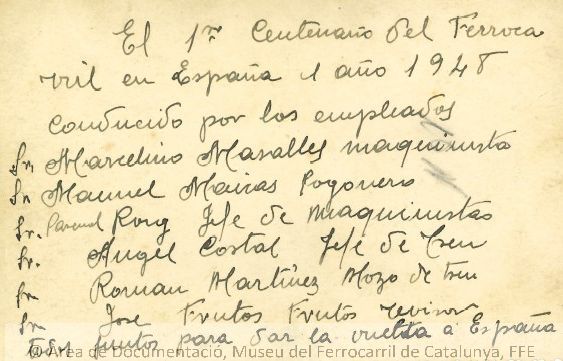 El 1er Centenario del Ferroca
rril en España 1 año 1948
conducido por los empleados
Sr. Marcelino Masalles maquinista
Sr. Manuel Mairas Fogonero
Sr. Pascual Roig Jefe de maquinistas
Sr. Angel Costal Jefe de tren
Sr. Roman Martínez Mozo de tren
Sr. Jose Frutos Frutos revisor
juntos para dar la vuelta a España
@Área de Documentació, Museu del Ferrocarril de Catalunya, FFE